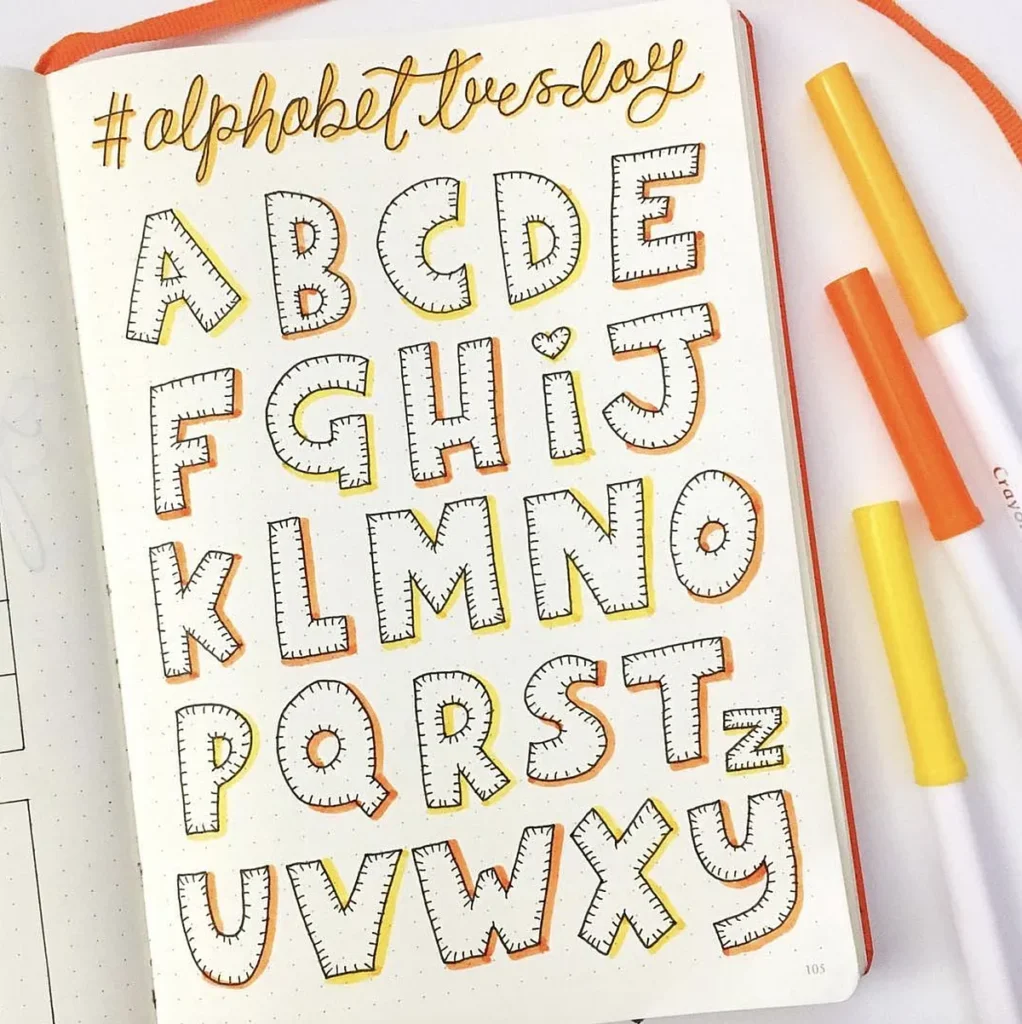 #alphabet tuesday
A B C D E
F G H i J
K L M N O
P Q R S T z
U V W X y
105
Crayo